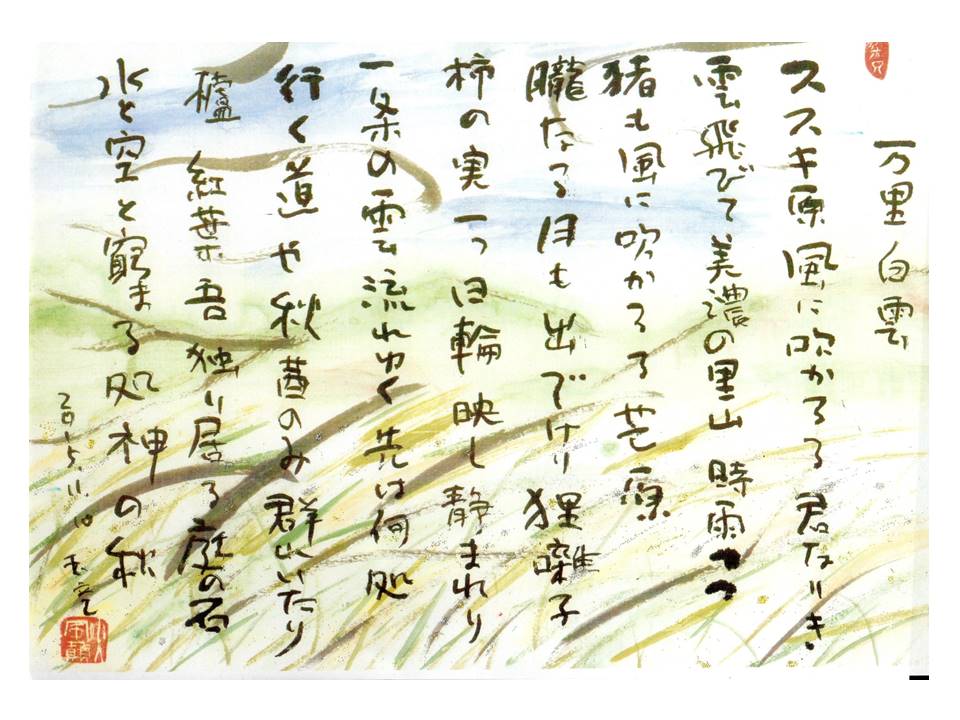 万里白雲
ススキ原風に吹かるる君なりき
雲飛びて美濃の里山時雨つつ
猪も風に吹かるる芒原
朧なる月も出でけり狸囃子
柿の実一つ日輪映し静まれり
一条の雲流れゆく先は何処
行く道や秋茜のみ群れいたり
櫨紅葉吾独り居る庭の石
水と空と窮まる処神の秋
2015.11.10